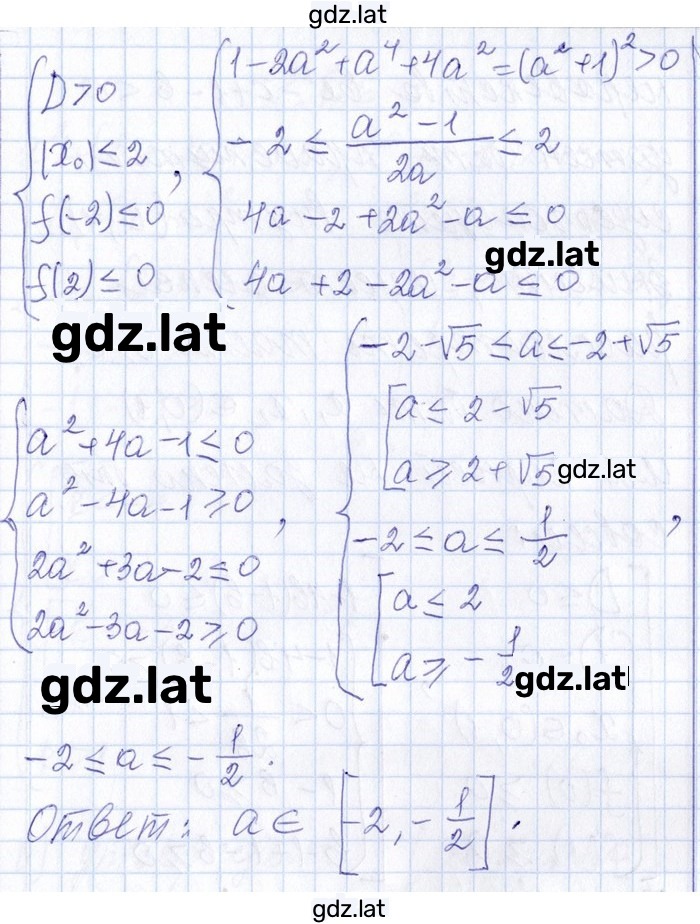 gdz.lat
{ D > 0
|x₀| ≤ 2
f(-2) ≤ 0
f(2) ≤ 0 ,
{ 1 - 2a² + a⁴ + 4a² = (a² + 1)² > 0
-2 ≤ (a² - 1)/2a ≤ 2
4a - 2 + 2a² - a ≤ 0
4a + 2 - 2a² - a ≤ 0
gdz.lat
gdz.lat
{ a² + 4a - 1 ≤ 0
a² - 4a - 1 ≥ 0
2a² + 3a - 2 ≤ 0
2a² - 3a - 2 ≥ 0 ,
{ -2 - √5 ≤ a ≤ -2 + √5
[ a ≤ 2 - √5
a ≥ 2 + √5
gdz.lat
-2 ≤ a ≤ 1/2
[ a ≤ 2
a ≥ - 1/2 ,
gdz.lat
gdz.lat
-2 ≤ a ≤ - 1/2 .
Ответ: a ∈ [-2, - 1/2] .
gdz.lat